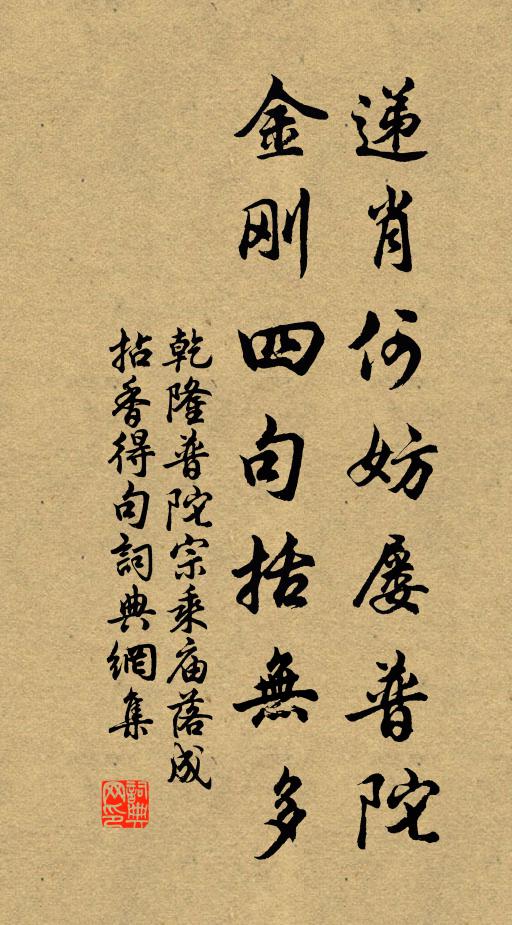 递肖何妨屡普陀
金刚四句括無多
乾隆普陀宗乘庙落成
拈香得句詞典網集
詞典
网印